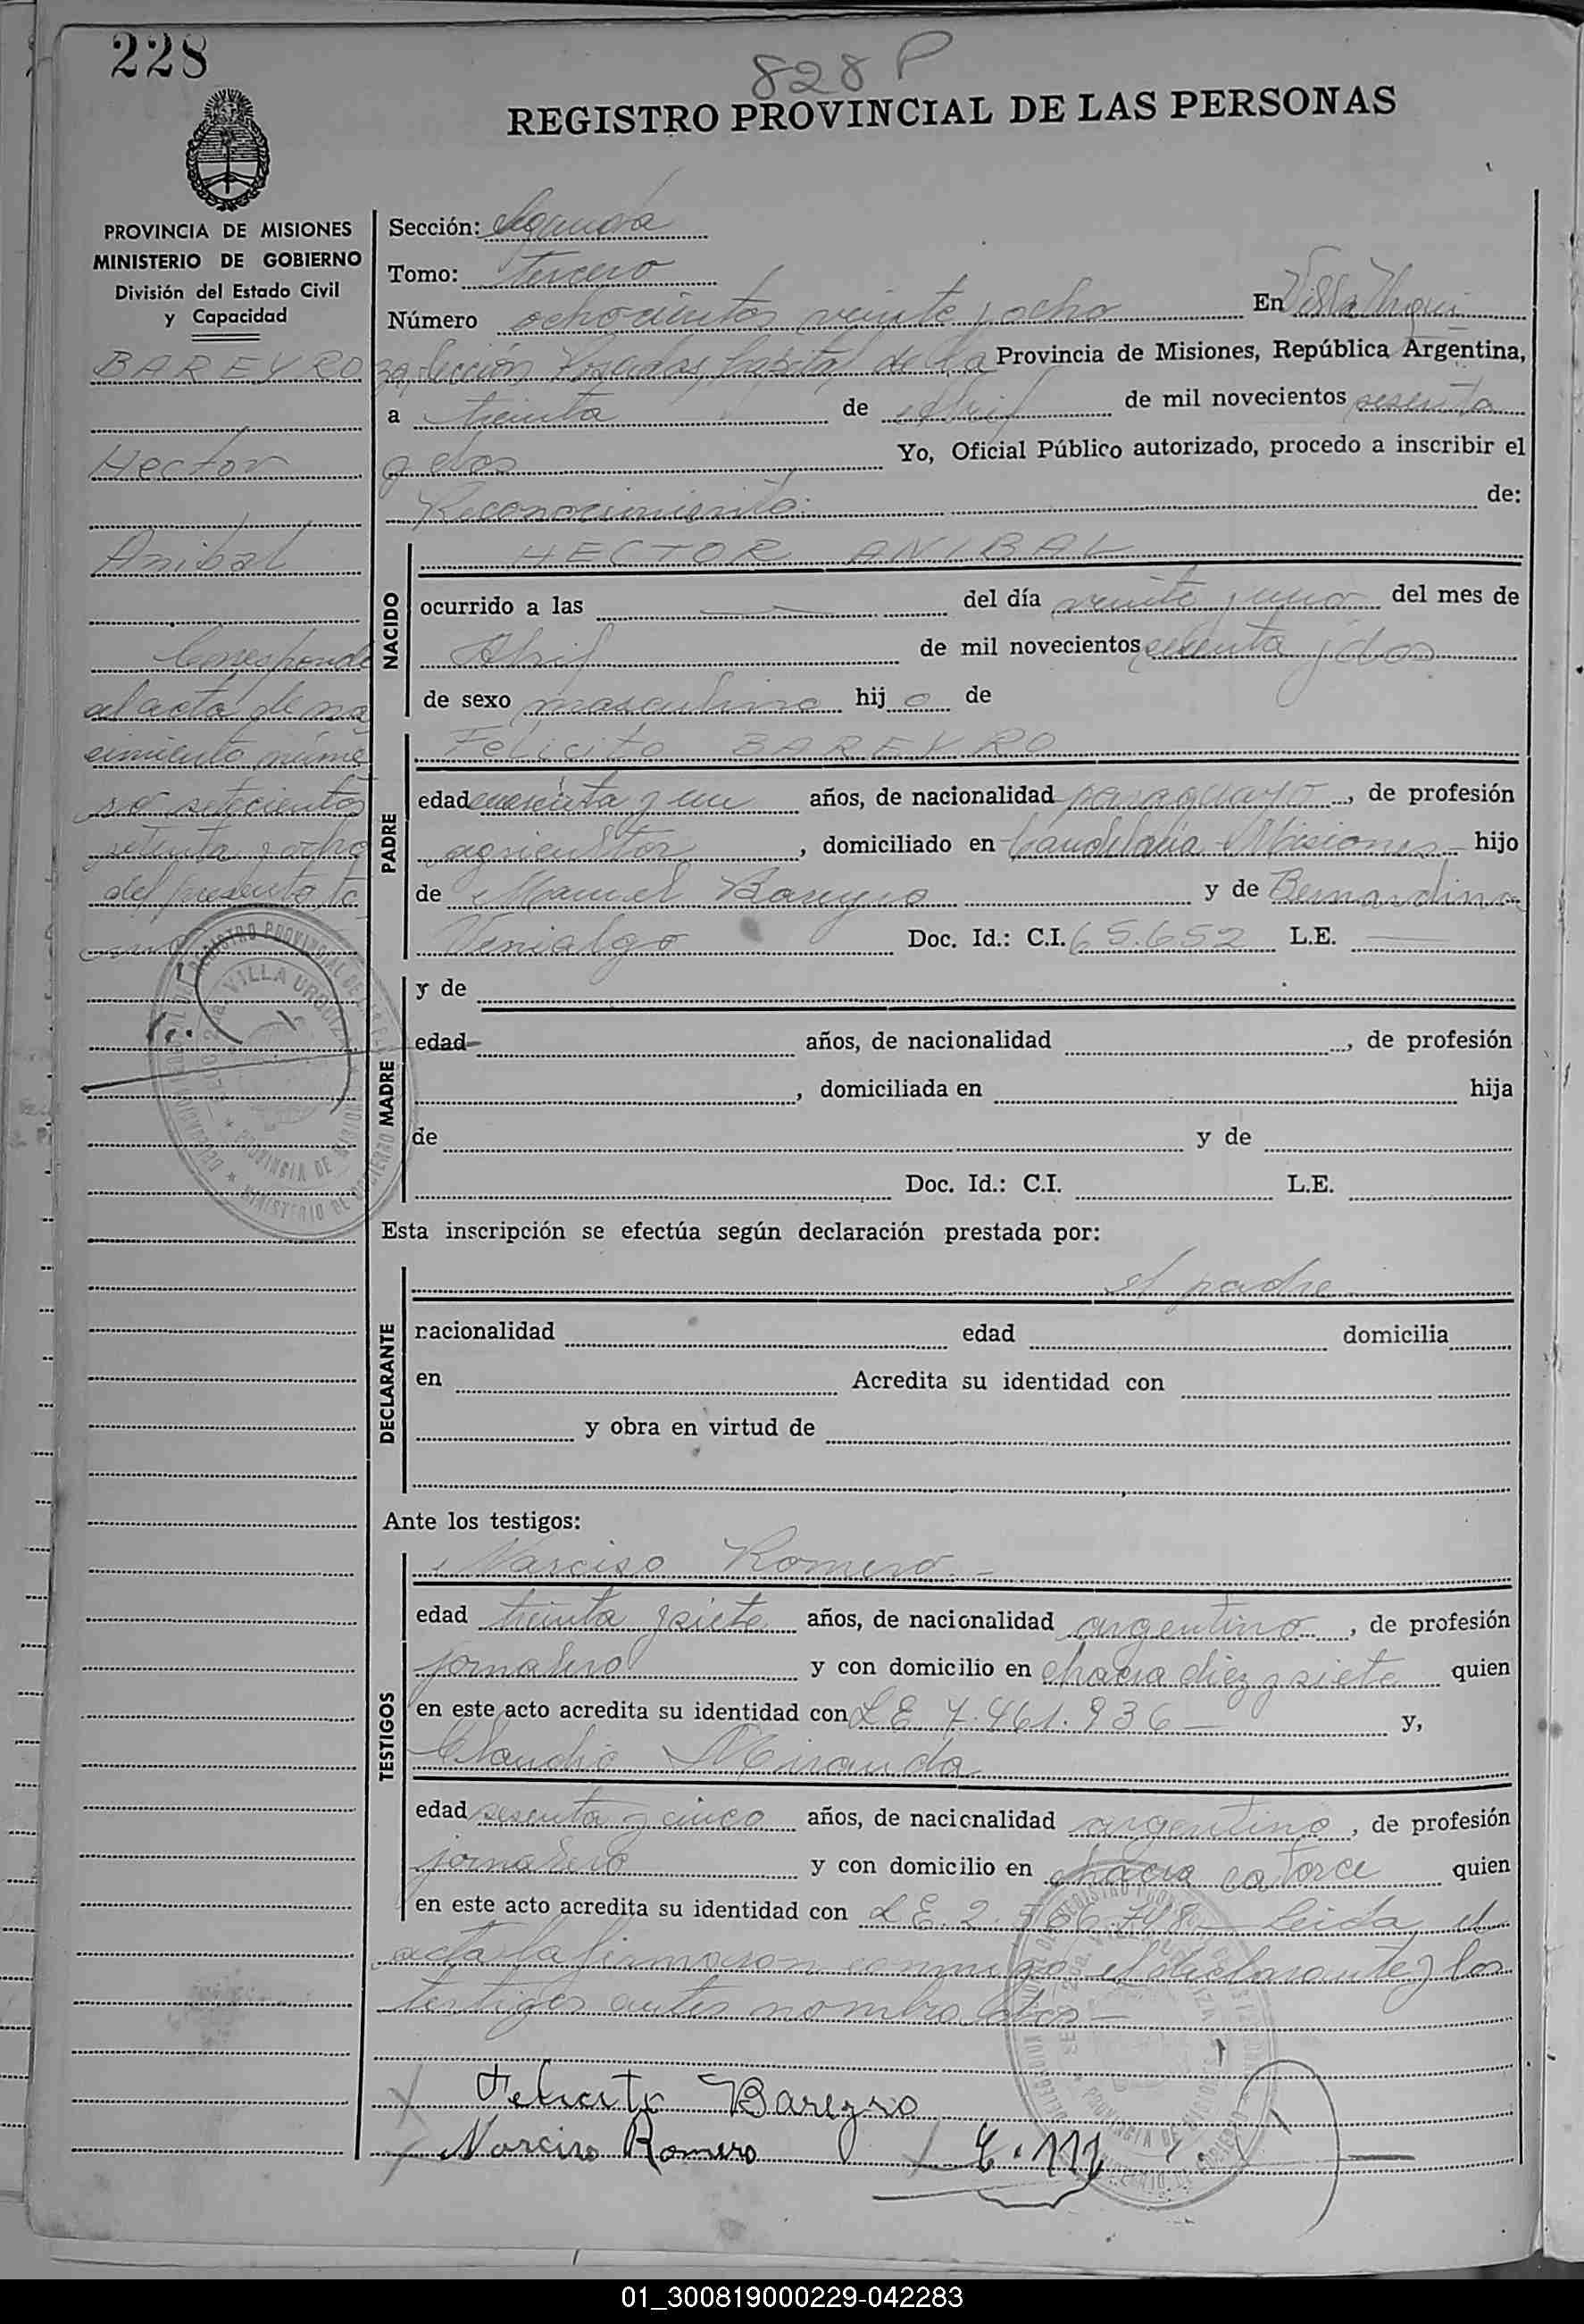 228
828 P
REGISTRO PROVINCIAL DE LAS PERSONAS
PROVINCIA DE MISIONES
MINISTERIO DE GOBIERNO
División del Estado Civil
y Capacidad
BAREYRO
Hector
Anibal
Corresponde
al acta de na
cimiento núme
ro setecientos
setenta y ocho
del presente to
Sección: Segunda
Tomo: tercero
Número ochocientos veinte y ocho En Villa Urqui
za, Sección Posadas, Capital de la Provincia de Misiones, República Argentina,
a treinta de Abril de mil novecientos sesenta
y dos Yo, Oficial Público autorizado, procedo a inscribir el
Reconocimiento: de:
NACIDO
HECTOR ANIBAL
ocurrido a las — del día veinte y uno del mes de
Abril de mil novecientos sesenta y dos
de sexo masculino hijo de
PADRE
Felicito BAREYRO
edad cuarenta y un años, de nacionalidad paraguayo, de profesión
agricultor, domiciliado en Candelaria Misiones hijo
de Manuel Bareyro y de Bernardina
Venialgo Doc. Id.: C.I. 65.652 L.E. —
MADRE
y de
edad años, de nacionalidad , de profesión
, domiciliada en hija
de y de
Doc. Id.: C.I. L.E.
Esta inscripción se efectúa según declaración prestada por:
DECLARANTE
el padre
nacionalidad edad domicilia
en Acredita su identidad con
y obra en virtud de
Ante los testigos:
TESTIGOS
Narciso Romero.-
edad treinta y siete años, de nacionalidad argentino, de profesión
jornalero y con domicilio en chacra diez y siete quien
en este acto acredita su identidad con L E 7.461.936 — y,
Claudio Miranda
edad sesenta y cinco años, de nacionalidad argentino, de profesión
jornalero y con domicilio en chacra catorce quien
en este acto acredita su identidad con L E. 2. 566.748 — Leida el
acta la firmaron conmigo el declarante y los
testigos antes nombrados —
Felicito Bareyro
Narciso Romero
01_300819000229-042283